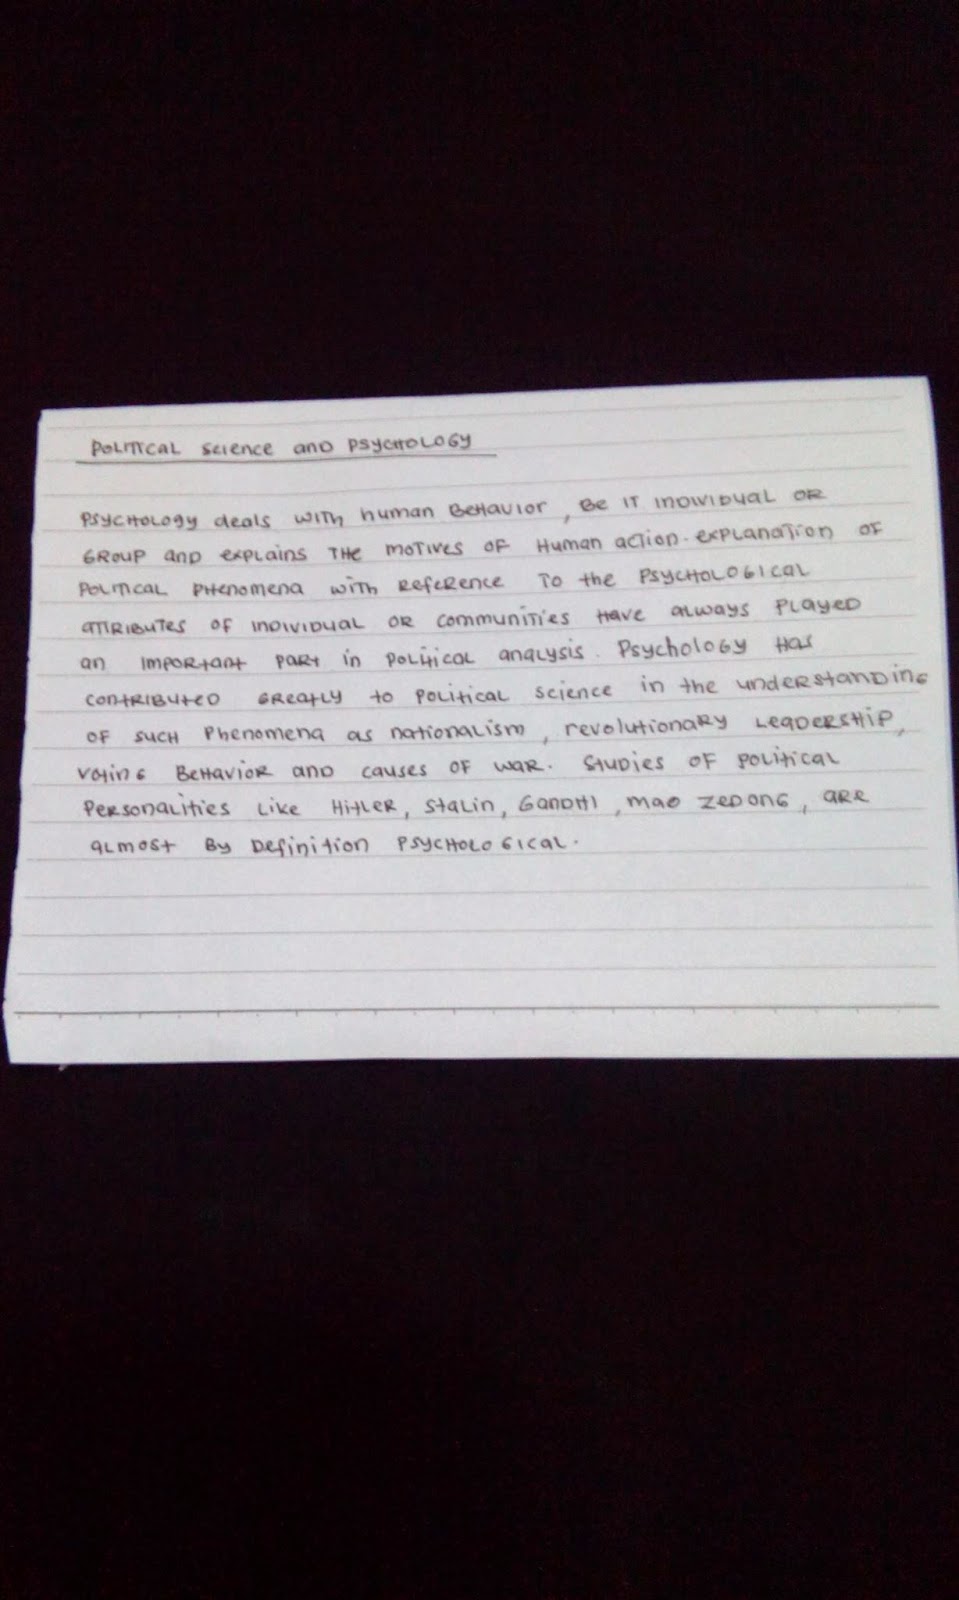 POLITICAL Science anD PSYCHOLOGY
PSYCHOLOGY deals WITH human BEHAVIOR, BE IT INDIVIDUAL OR
GROUP and explains THE MOTIVES OF Human action. explanation OF
POLITICAL PHenomena with ReFeRence To the PSYCHOLOGICAL
ATTRIBUTES OF INDIVIDUAL OR Communities Have always PLayeD
an IMPORtant PaRt in Political analysis. Psychology Has
contRiButeD GReatly to Political science in the understanDinG
OF SUCH Phenomena as nationalism, revolutionaRy LeaDeRSHIP,
VotinG BeHavioR and causes OF waR. StuDies OF political
PeRsonalities Like HitLeR, Stalin, GanDHI, mao ZeDonG, aRe
almost By Definition PSYCHOLOGICal.